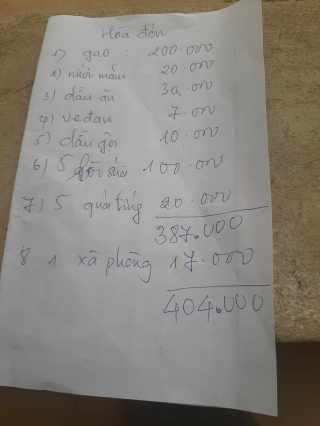 Hóa đơn
1) gạo : 200.000
2) nước mắm 20.000
3) dầu ăn 30.000
4) vedan 7.000
5) dầu gội 10.000
6) 5 gói sữa 100.000
7) 5 quả trứng 20.000
387.000
8 1 xà phòng 17.000
404.000